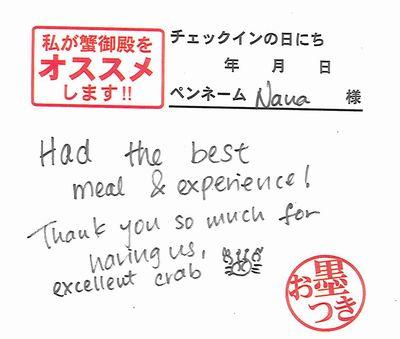 私が蟹御殿を
オススメ
します!!
チェックインの日にち
年 月 日
ペンネーム Nana 様
Had the best
meal & experience!
Thank you so much for
having us,
excellent crab
墨
お
つき